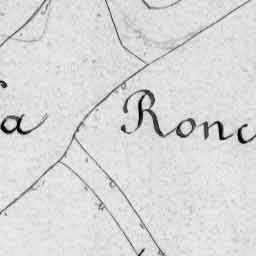 a Ronc